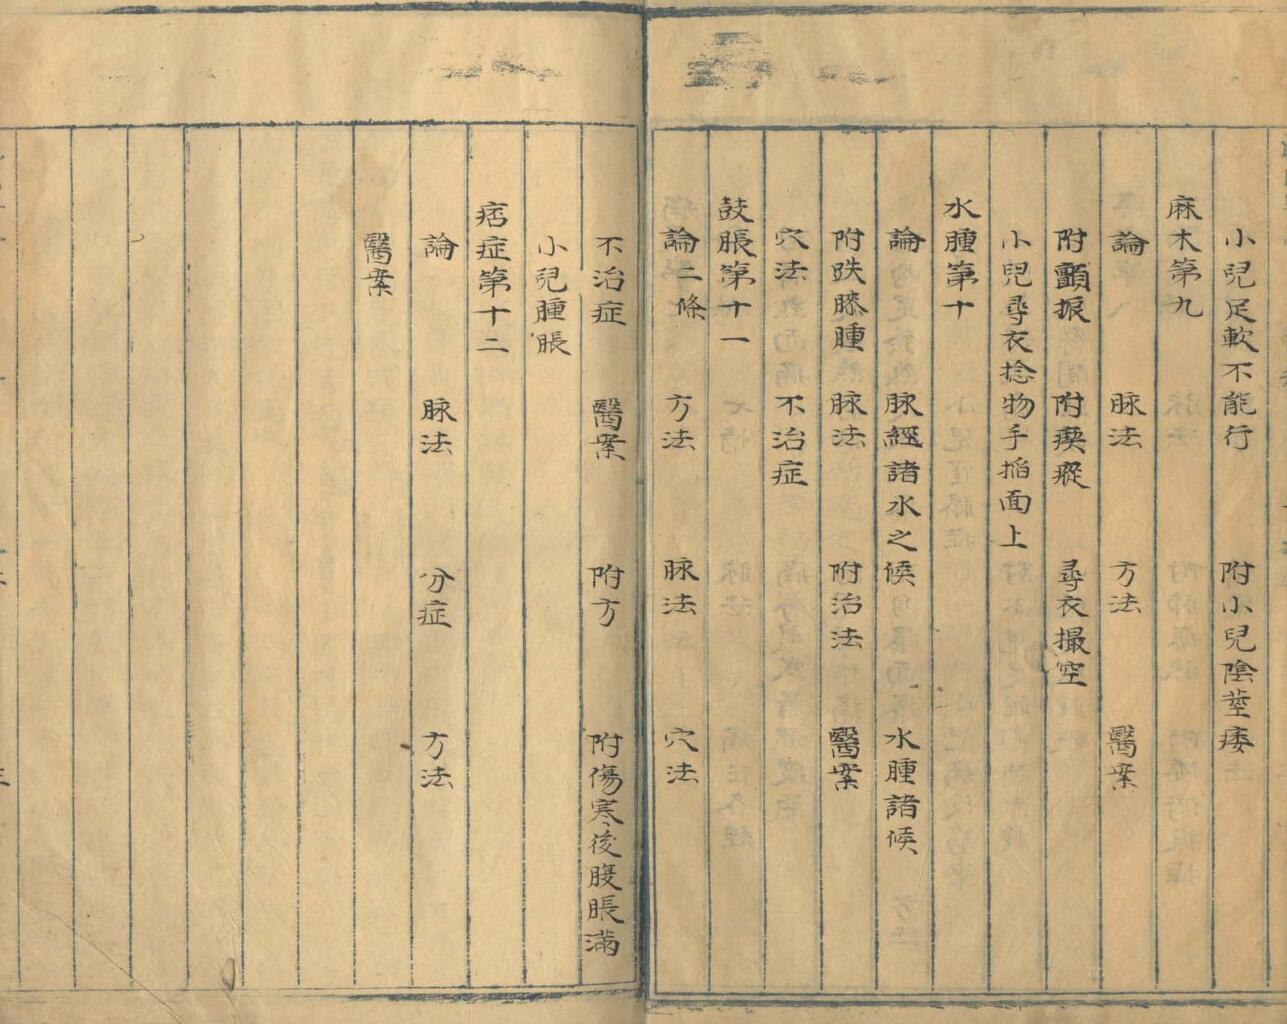 小兒足軟不能行 附小兒陰莖痿
麻木第九
論 脉法 方法 醫案
附顫振 附瘈瘲 尋衣撮空
小兒尋衣捻物手掐面上
水腫第十
論 脉經諸水之候 水腫諸候
附跌膝腫 脉法 附治法 醫案
穴法 不治症
鼓脹第十一
論二條 方法 脉法 穴法
不治症 醫案 附方 附傷寒後腹脹滿
小兒腫脹
痞症第十二
論 脉法 分症 方法
醫案